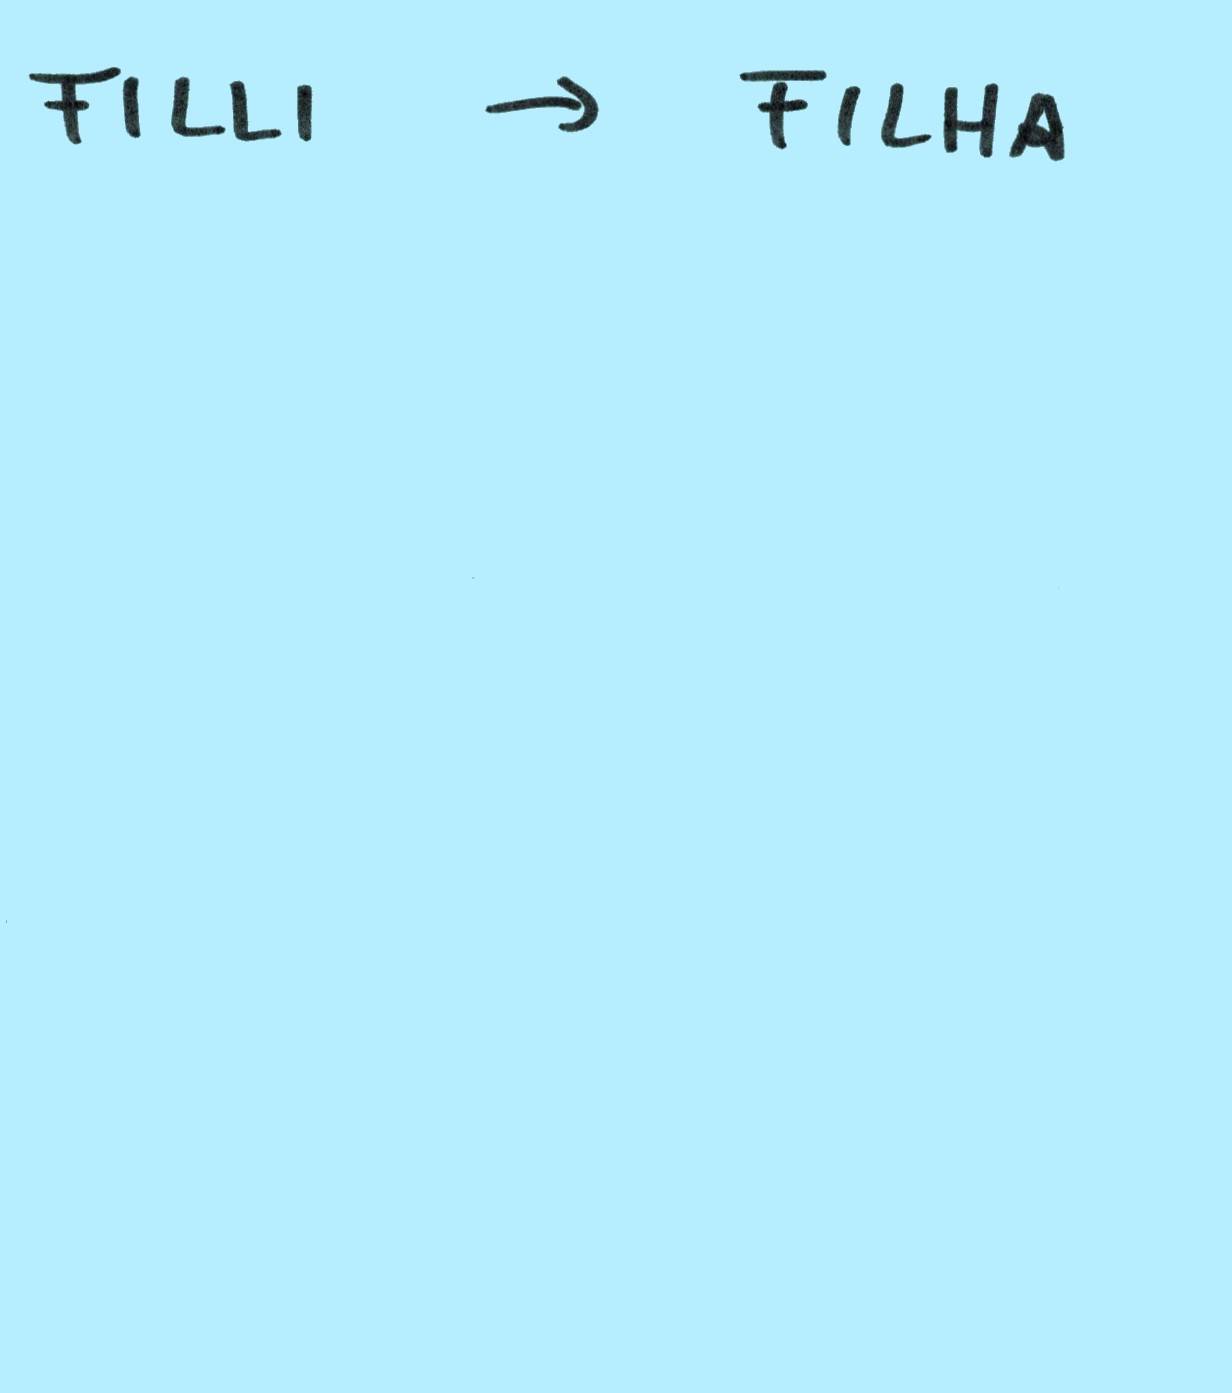 FILLI → FILHA